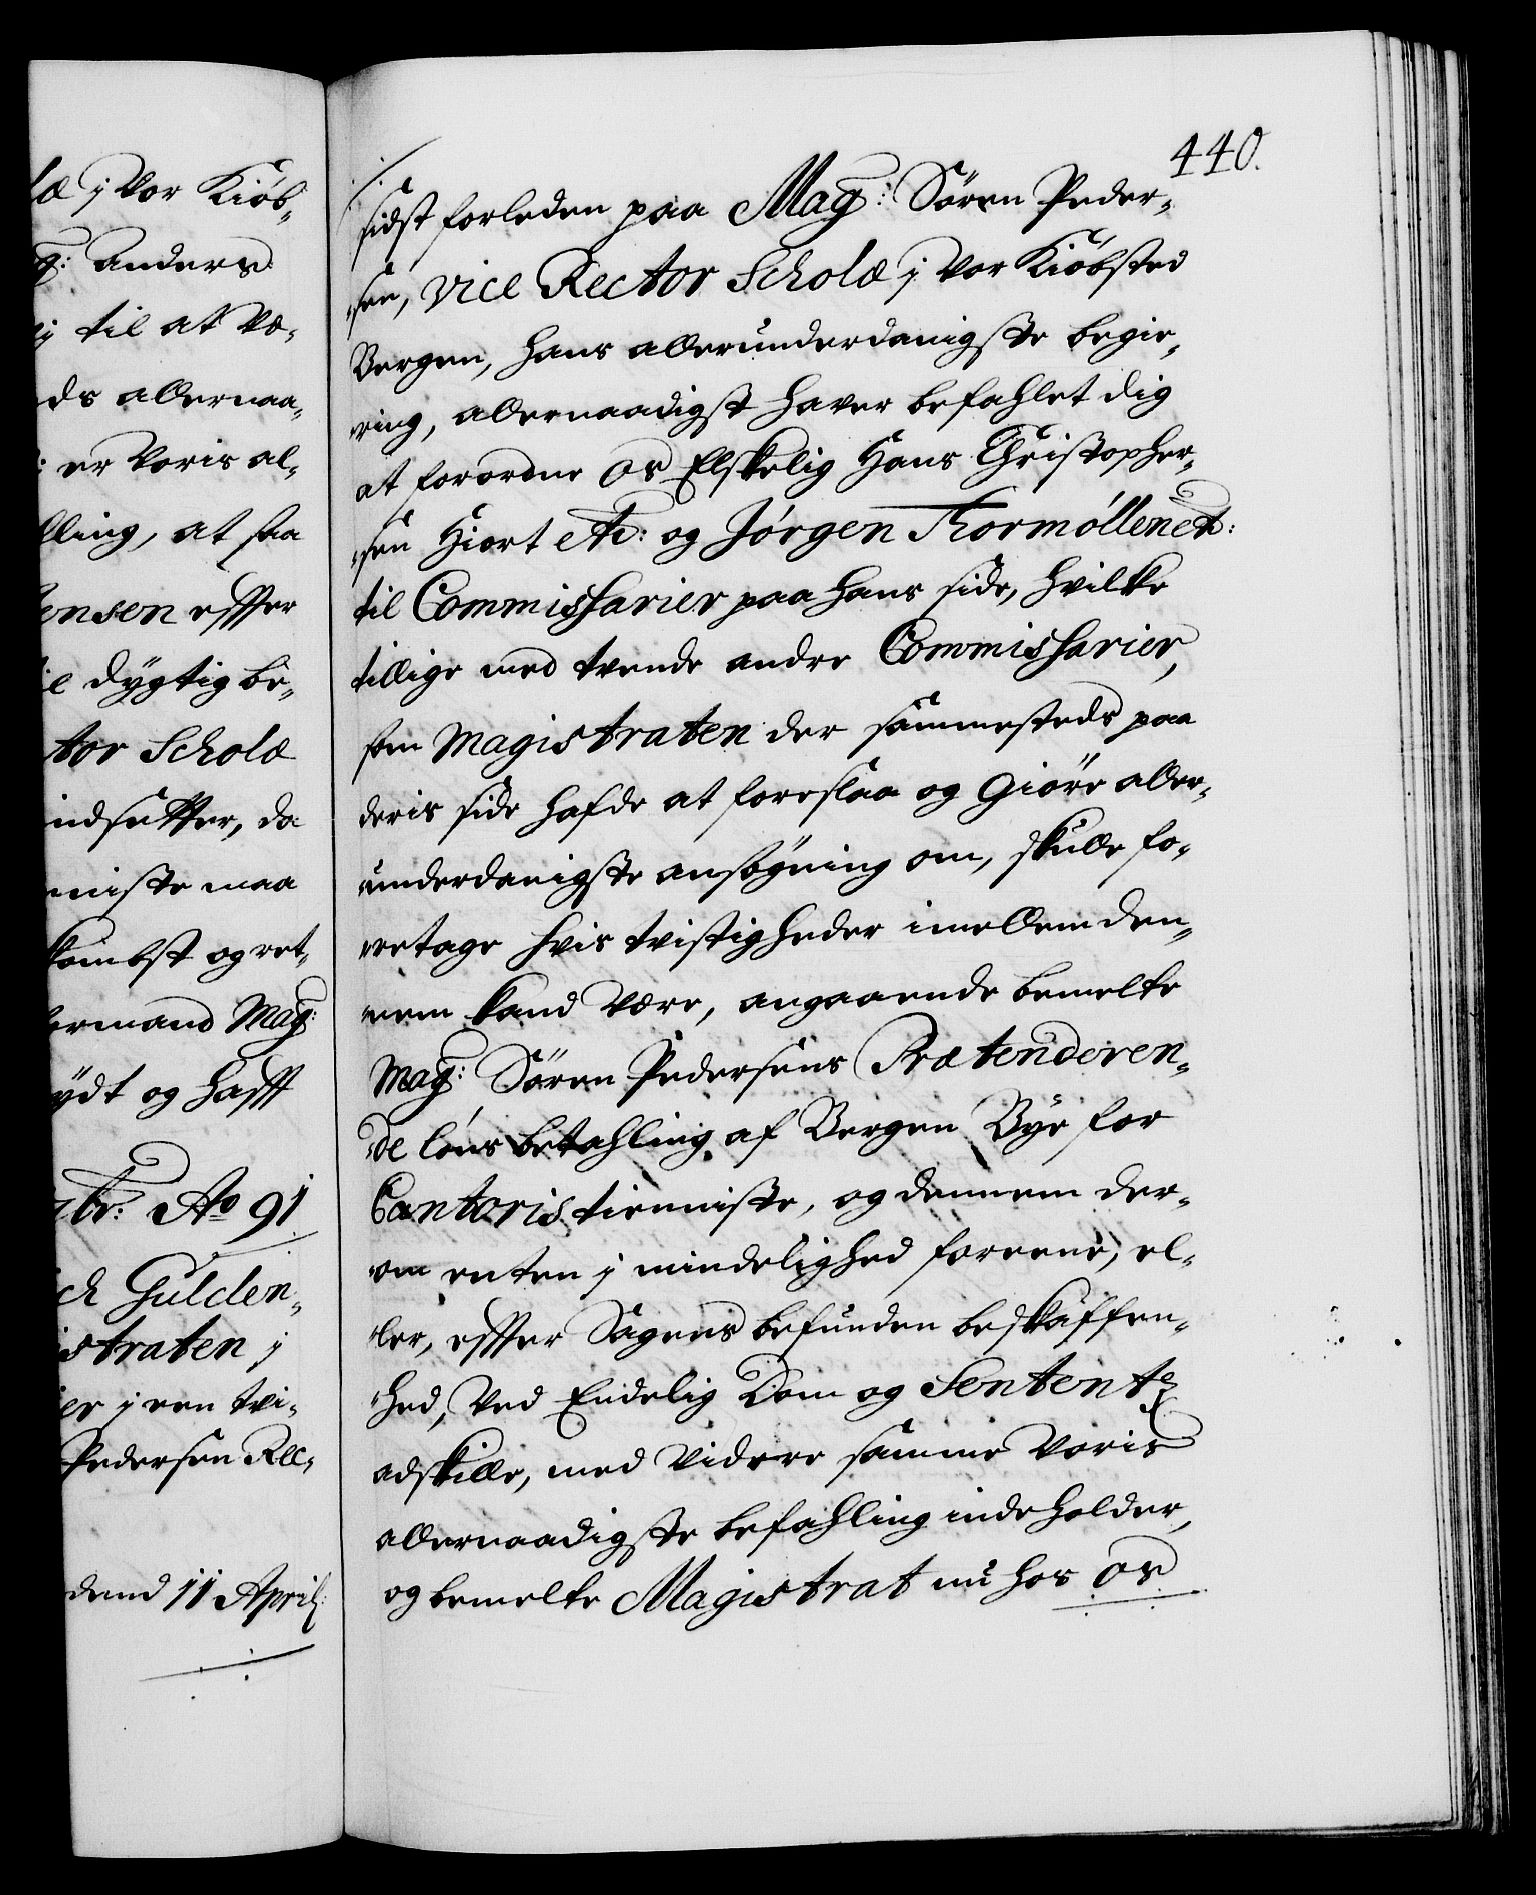 læ j vor Kiøb-
g: Anders
ig til at væ-
ds allernaa-
: er Voris al-
lling, at saa
ensen effter
il dygtig be-
tor Scholæ
indsetter, da
niste maa
kombst og ret-
formand Mag:
ydt og hafft
br: Ao 91
ch Gulden-
istraten j
er j een tvi-
Pedersen Rec-
dend 11 April:
440.
sidst forleden paa Mag: Søren Peder-
sen, Vice Rector Scholæ j vor Kiøbsted
Bergen, hans allerunderdanigste begie-
ring, allernaadigst haver befahlet dig
at forordne os Elskelig Hans Christopher-
sen Hiort etc: og Jørgen Thormøllen etc:
til Commissarier paa hans side, hvilke
tillige med tvende andre Commissarier,
som Magistraten der sammesteds paa
deris side hafde at foreslaa og giøre aller-
underdanigste ansøgning om, skulle fo-
retage hvis tvistigheder imellem den-
nem kand være, angaaende bemelte
Mag: Søren Pedersens Prætenderen-
de løns betahling af Bergen Bye for
Cantoris tienniste, og dennem der-
om enten j mindelighed foreene, el-
ler, effter Sagens befunden beskaffen-
hed, ved Endelig Dom og Sententz
adskille, med videre samme voris
allernaadigste befahling indeholder,
og bemelte Magistrat nu hos os